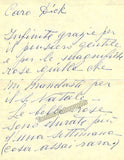 Caro Dick
Infinite grazie per
il pensiero gentile
e per le magnifiche
Rose gialle che
mi mandaste per
il g. Natale
Le belle rose
sono durate per
una settimana
(cosa assai rara)